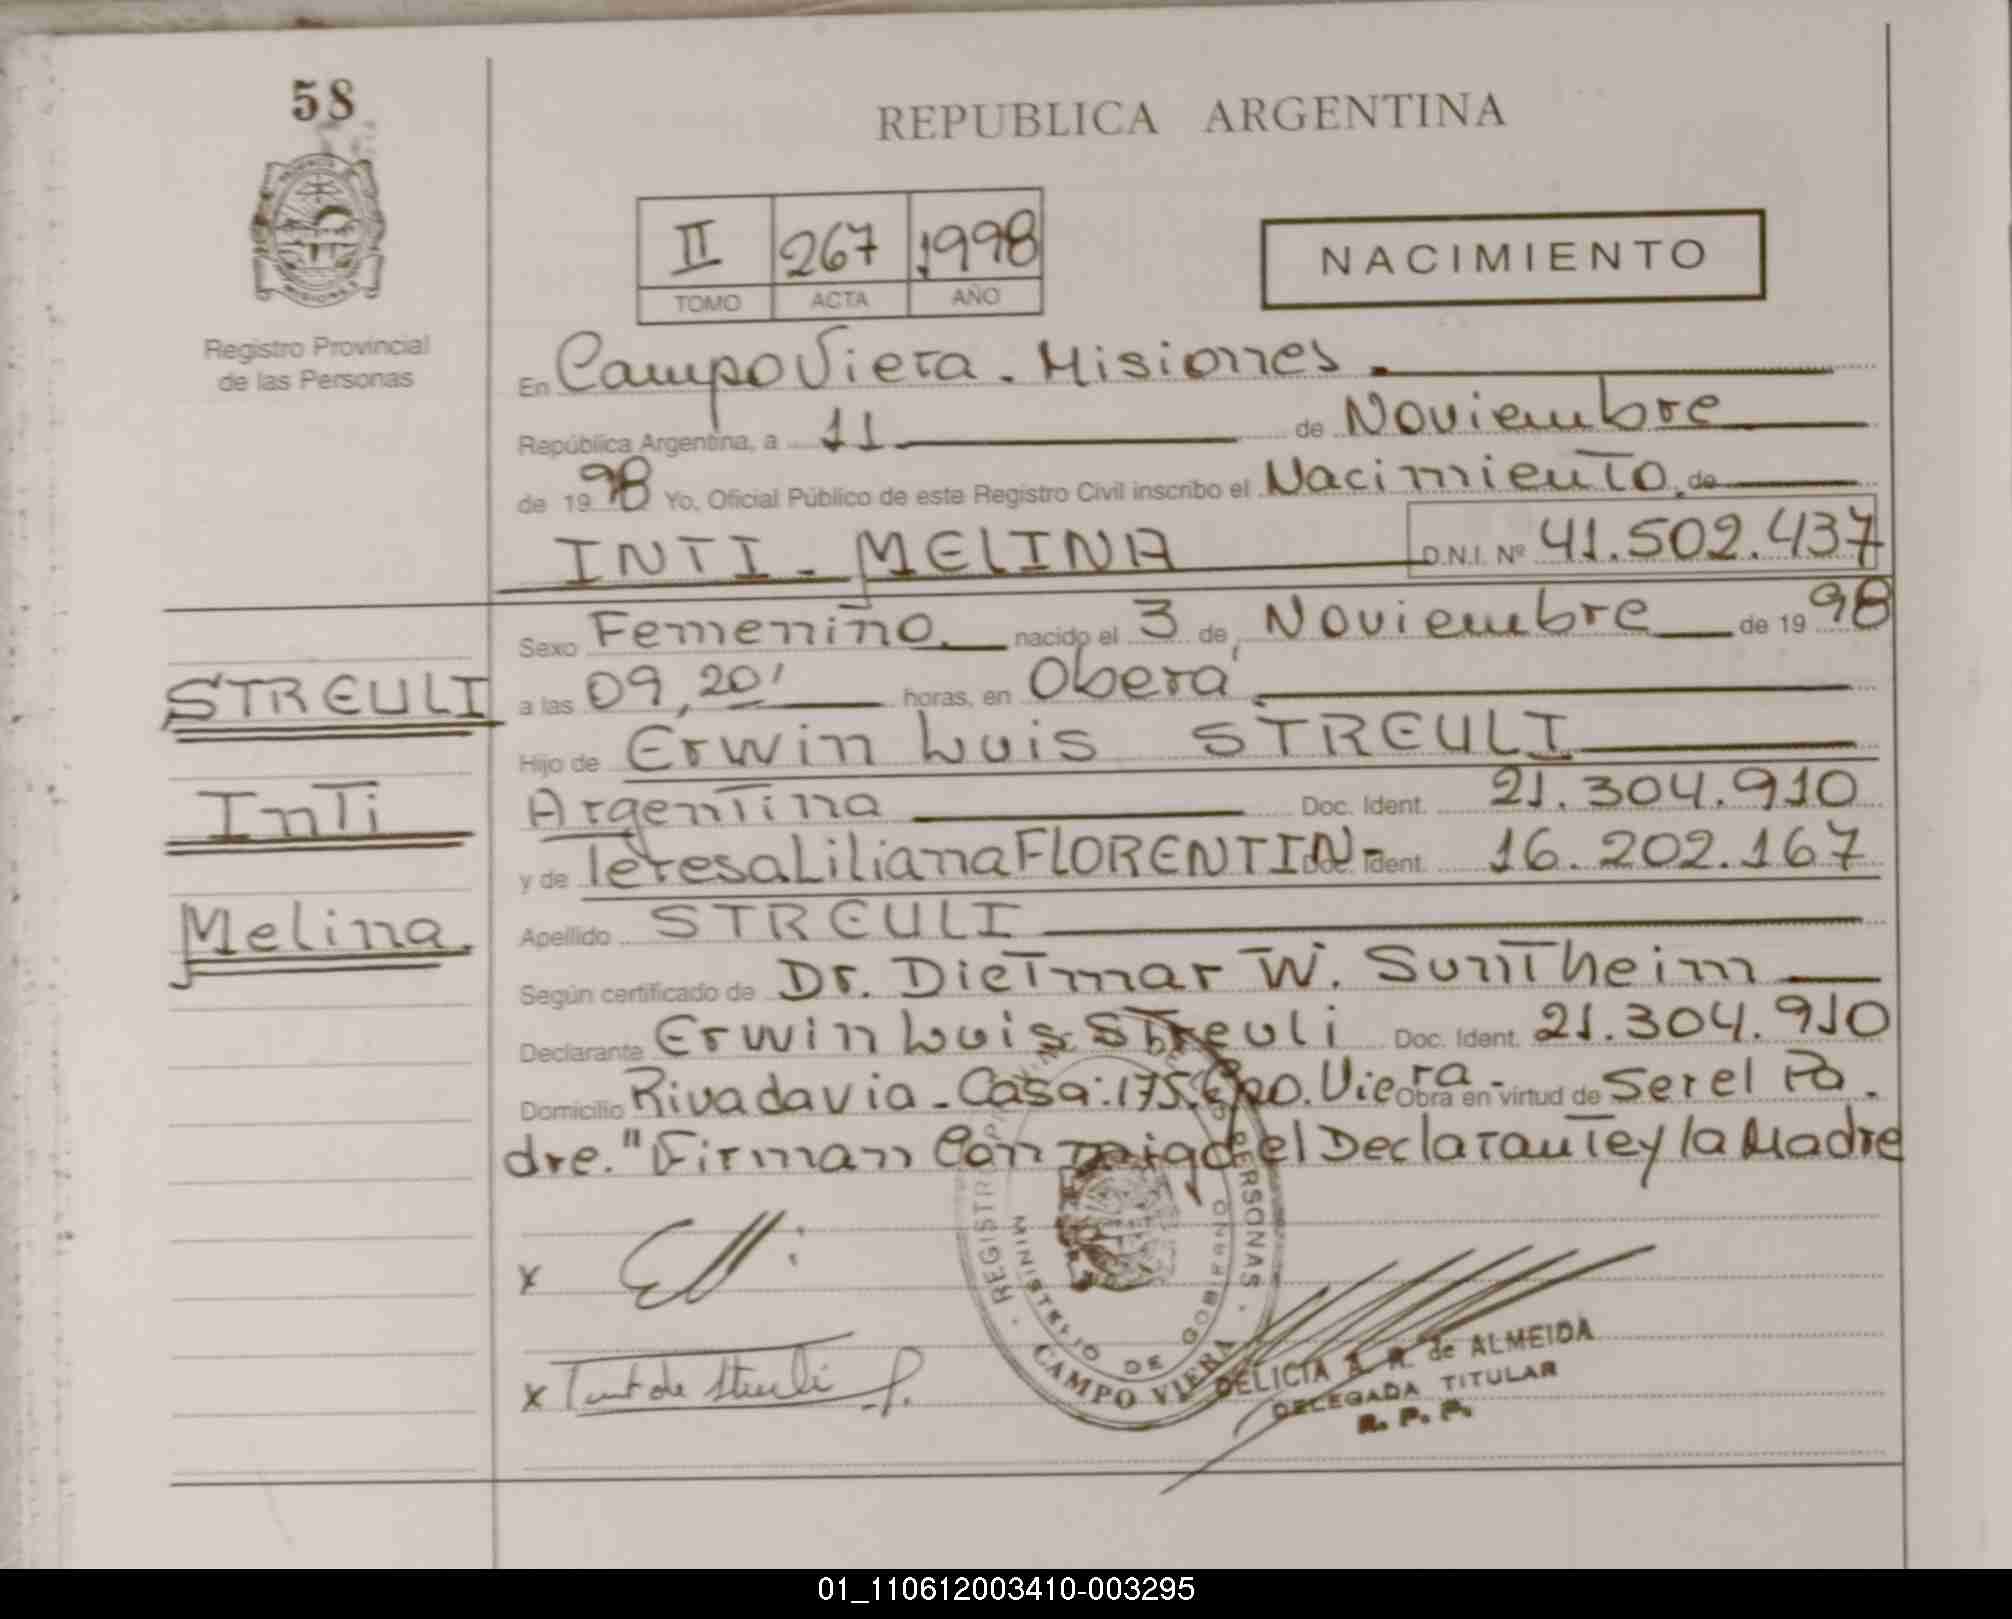 58
REPUBLICA ARGENTINA
II 267 1998
TOMO ACTA AÑO
NACIMIENTO
Registro Provincial
de las Personas
En Campo Viera - Misiones.
República Argentina, a 11 de Noviembre
de 1998 Yo, Oficial Público de este Registro Civil inscribo el Nacimiento de
INTI - MELINA D.N.I. Nº 41.502.437
Sexo Femenino nacido el 3 de Noviembre de 1998
STREULI
a las 09,20' horas, en Oberá
Hijo de Erwin Luis STREULI
Inti
Argentina Doc. Ident. 21.304.910
y de Teresa Liliana FLORENTIN- Doc. Ident. 16.202.167
Melina.
Apellido STREULI
Según certificado de Dr. Dietmar W. Suntheim
Declarante Erwin Luis Streuli Doc. Ident. 21.304.910
Domicilio Rivadavia - Casa: 175. Cpo. Viera - Obra en virtud de Ser el Pa-
dre. "Firman Conmigo el Declarante y la Madre
x
x de Streuli
REGISTRO PERSONAS
MINISTERIO DE GOBIERNO
CAMPO VIERA
DELICIA A. R. de ALMEIDA
DELEGADA TITULAR
R. P. P.
01_110612003410-003295